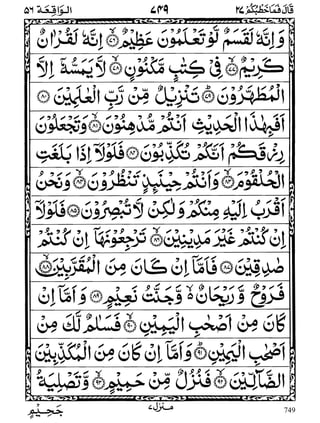 قال فما خطبكم ٢٧ ٧٤٩ الواقعة ٥٦
وَاِنَّهٗ لَقَسَمٌ لَّوْ تَعْلَمُوْنَ عَظِيْمٌ ﴿٧٦﴾ اِنَّهٗ لَقُرْاٰنٌ
كَرِيْمٌ ﴿٧٧﴾ فِيْ كِتٰبٍ مَّكْنُوْنٍ ﴿٧٨﴾ لَّا يَمَسُّهٗٓ اِلَّا
الْمُطَهَّرُوْنَ ﴿٧٩﴾ تَنْزِيْلٌ مِّنْ رَّبِّ الْعٰلَمِيْنَ ﴿٨٠﴾
اَفَبِهٰذَا الْحَدِيْثِ اَنْتُمْ مُّدْهِنُوْنَ ﴿٨١﴾ وَتَجْعَلُوْنَ
رِزْقَكُمْ اَنَّكُمْ تُكَذِّبُوْنَ ﴿٨٢﴾ فَلَوْلَآ اِذَا بَلَغَتِ
الْحُلْقُوْمَ ﴿٨٣﴾ وَاَنْتُمْ حِيْنَىِٕذٍ تَنْظُرُوْنَ ﴿٨٤﴾ وَنَحْنُ
اَقْرَبُ اِلَيْهِ مِنْكُمْ وَلٰكِنْ لَّا تُبْصِرُوْنَ ﴿٨٥﴾ فَلَوْلَآ
اِنْ كُنْتُمْ غَيْرَ مَدِيْنِيْنَ ﴿٨٦﴾ تَرْجِعُوْنَهَآ اِنْ كُنْتُمْ
صٰدِقِيْنَ ﴿٨٧﴾ فَاَمَّآ اِنْ كَانَ مِنَ الْمُقَرَّبِيْنَ ﴿٨٨﴾
فَرَوْحٌ وَّرَيْحَانٌ ەۙ وَّجَنَّتُ نَعِيْمٍ ﴿٨٩﴾ وَاَمَّآ اِنْ
كَانَ مِنْ اَصْحٰبِ الْيَمِيْنِ ﴿٩٠﴾ فَسَلٰمٌ لَّكَ مِنْ
اَصْحٰبِ الْيَمِيْنِ ﴿٩١﴾ وَاَمَّآ اِنْ كَانَ مِنَ الْمُكَذِّبِيْنَ
الضَّآلِّيْنَ ﴿٩٢﴾ فَنُزُلٌ مِّنْ حَمِيْمٍ ﴿٩٣﴾ وَّتَصْلِيَةُ
منزل ٧ جَحِيْمٍ
749